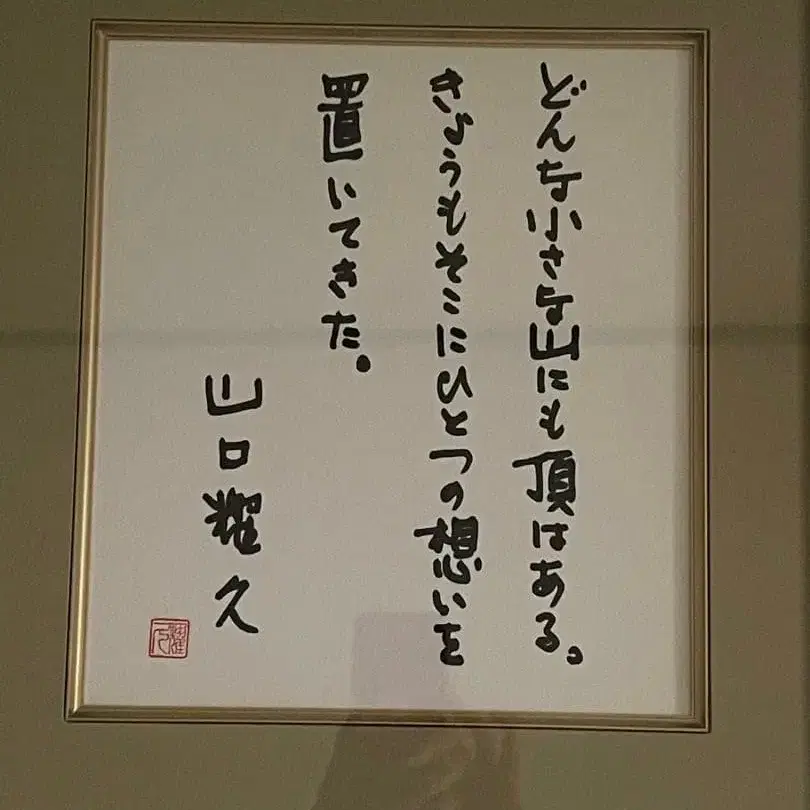 どんな小さな山にも頂はある。
きょうもそこにひとつの想いを
置いてきた。
山口耀久